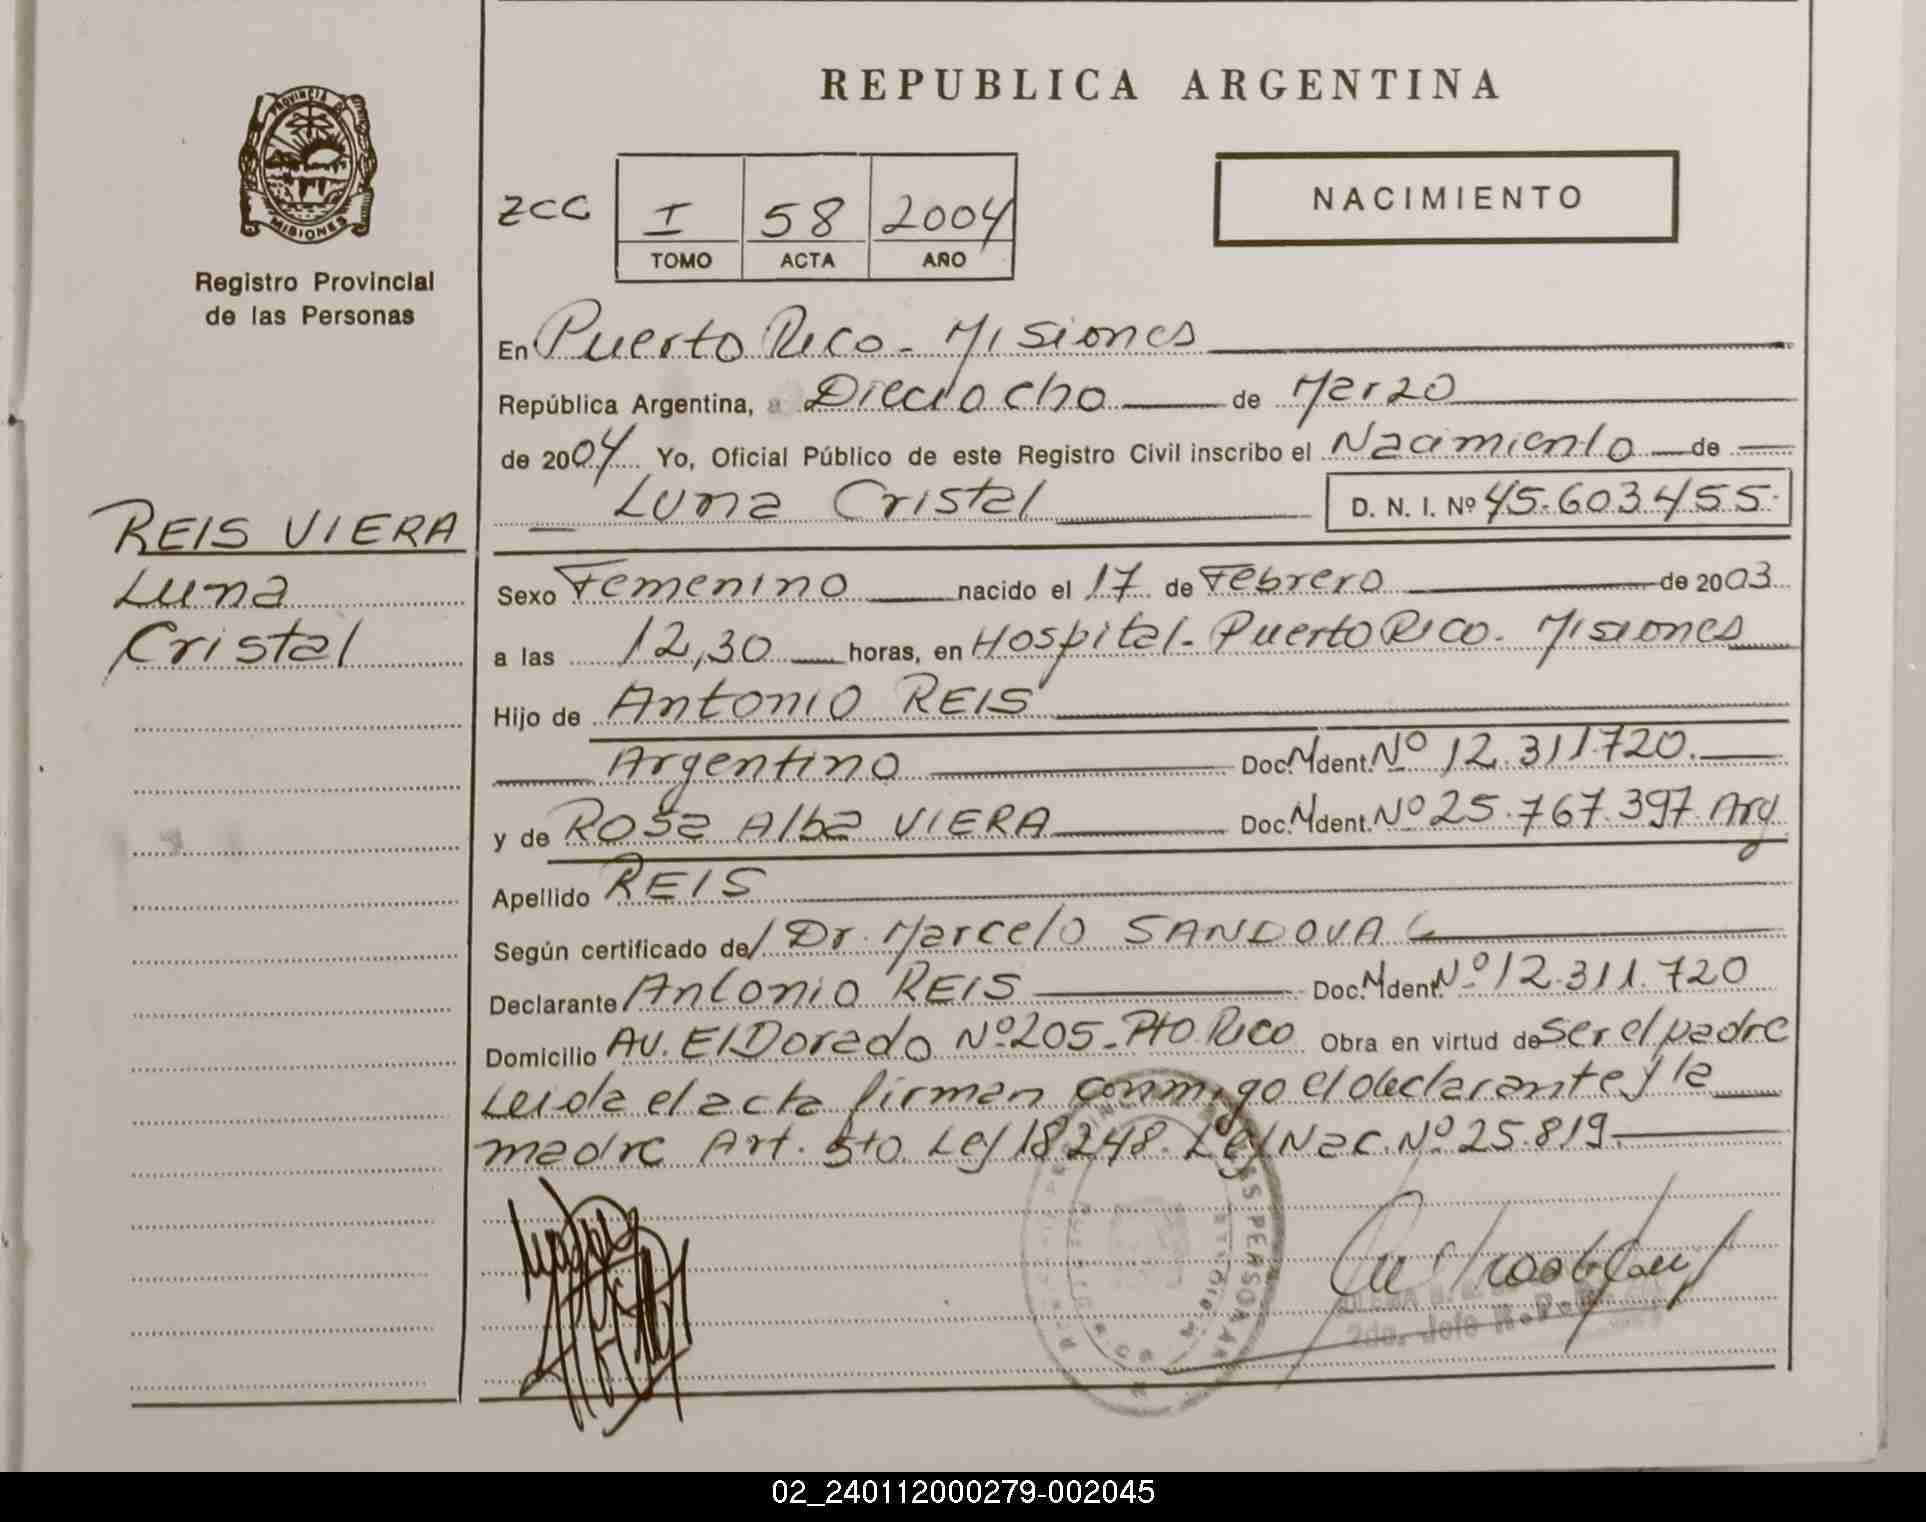 REPUBLICA ARGENTINA
PROVINCIA DE
MISIONES
Registro Provincial
de las Personas
NACIMIENTO
ZCC I 58 2004
TOMO ACTA AÑO
En Puerto Rico - Misiones
República Argentina, a Dieciocho de Marzo
de 2004 Yo, Oficial Público de este Registro Civil inscribo el Nacimiento de
Luna Cristal D. N. I. Nº 45.603.455.
REIS VIERA
Luna
Cristal
Sexo Femenino nacido el 17 de Febrero de 2003
a las 12,30 horas, en Hospital - Puerto Rico - Misiones
Hijo de Antonio REIS
Argentino Doc. Ident. Nº 12.311.720.
y de Rosa Alba VIERA Doc. Ident. Nº 25.767.397 Arg
Apellido REIS
Según certificado de/ Dr. Marcelo SANDOVAL
Declarante Antonio REIS Doc. Ident. Nº 12.311.720
Domicilio Av. El Dorado Nº 205 - Pto Rico Obra en virtud de ser el padre
Leida el acta firman conmigo el declarante y la
madre Art. 5to. Ley 18248. Ley Nac. Nº 25.819.
2do. Jefe
02_240112000279-002045